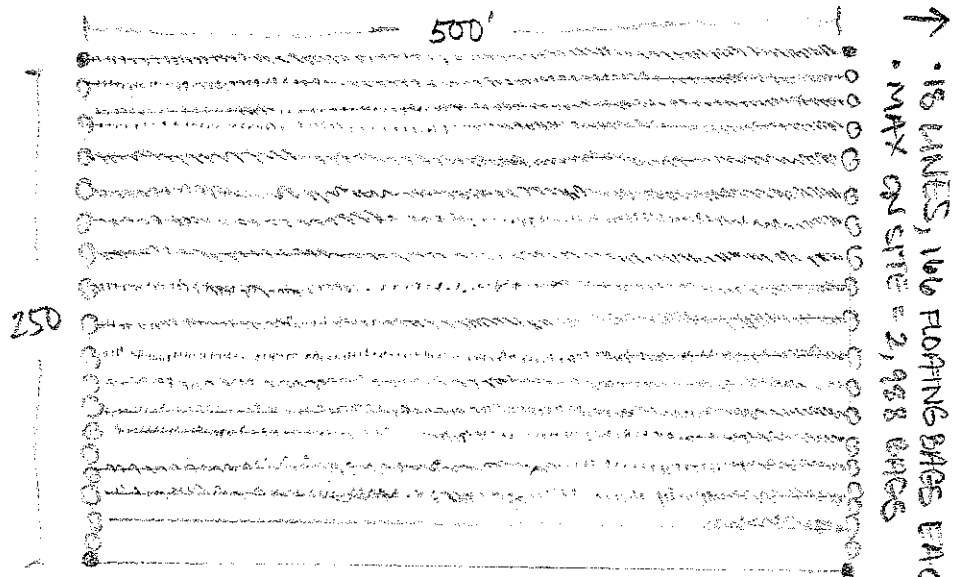 500'
250
• 18 LINES, 166 FLOATING BAGS EAC
• MAX ON SITE = 2,988 BAGS